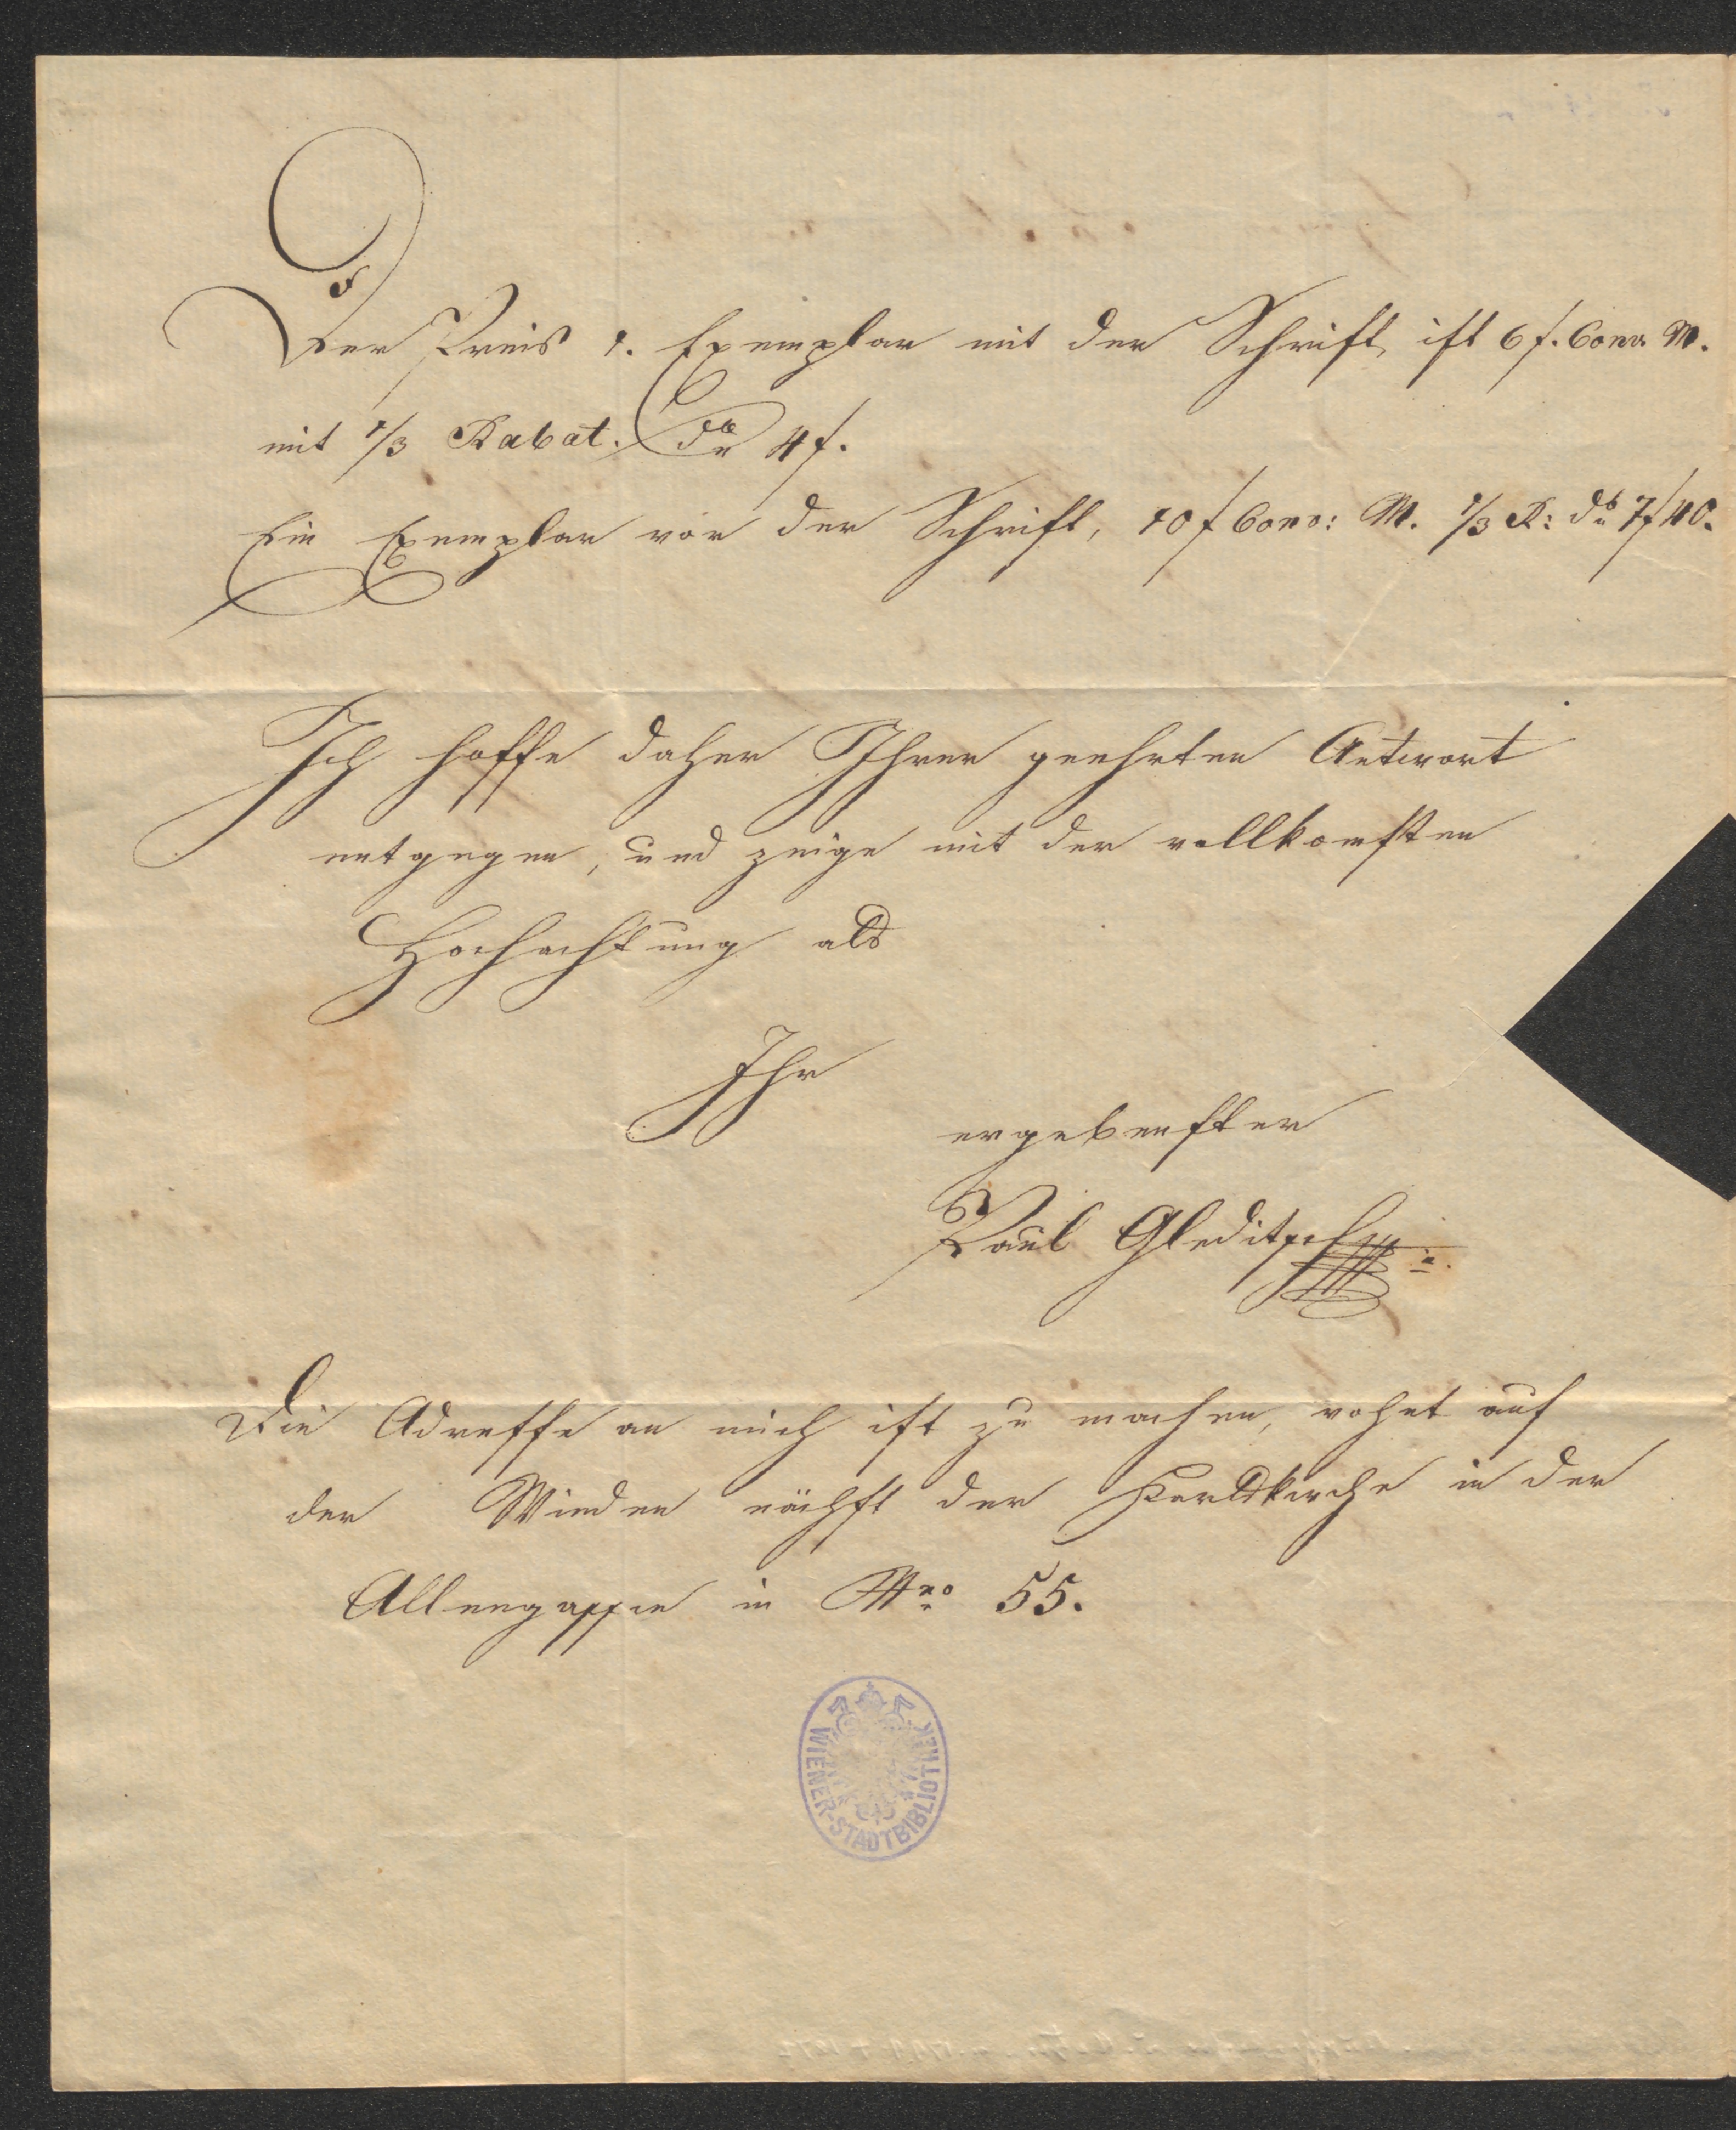 Der Preis 1. Exemplar mit der Schrift ist 6 f. Conv. M.
mit 1/3 Rabat. do 4 f.
Ein Exemplar vor der Schrift, 10 f Conv: M. 1/3 R: do 7f 40.
Ich hoffe daher Ihrer geehrten Antwort
entgegen, und zeige mit der vollkomsten
Hochachtung als
Ihr
ergebenster
Paul Gleditsch
Die Adresse an mich ist zu machen, wohnt auf
der Wieden nächst der Karlskirche in der
Alleegasse in Nro 55.
WIENER-STADTBIBLIOTHEK